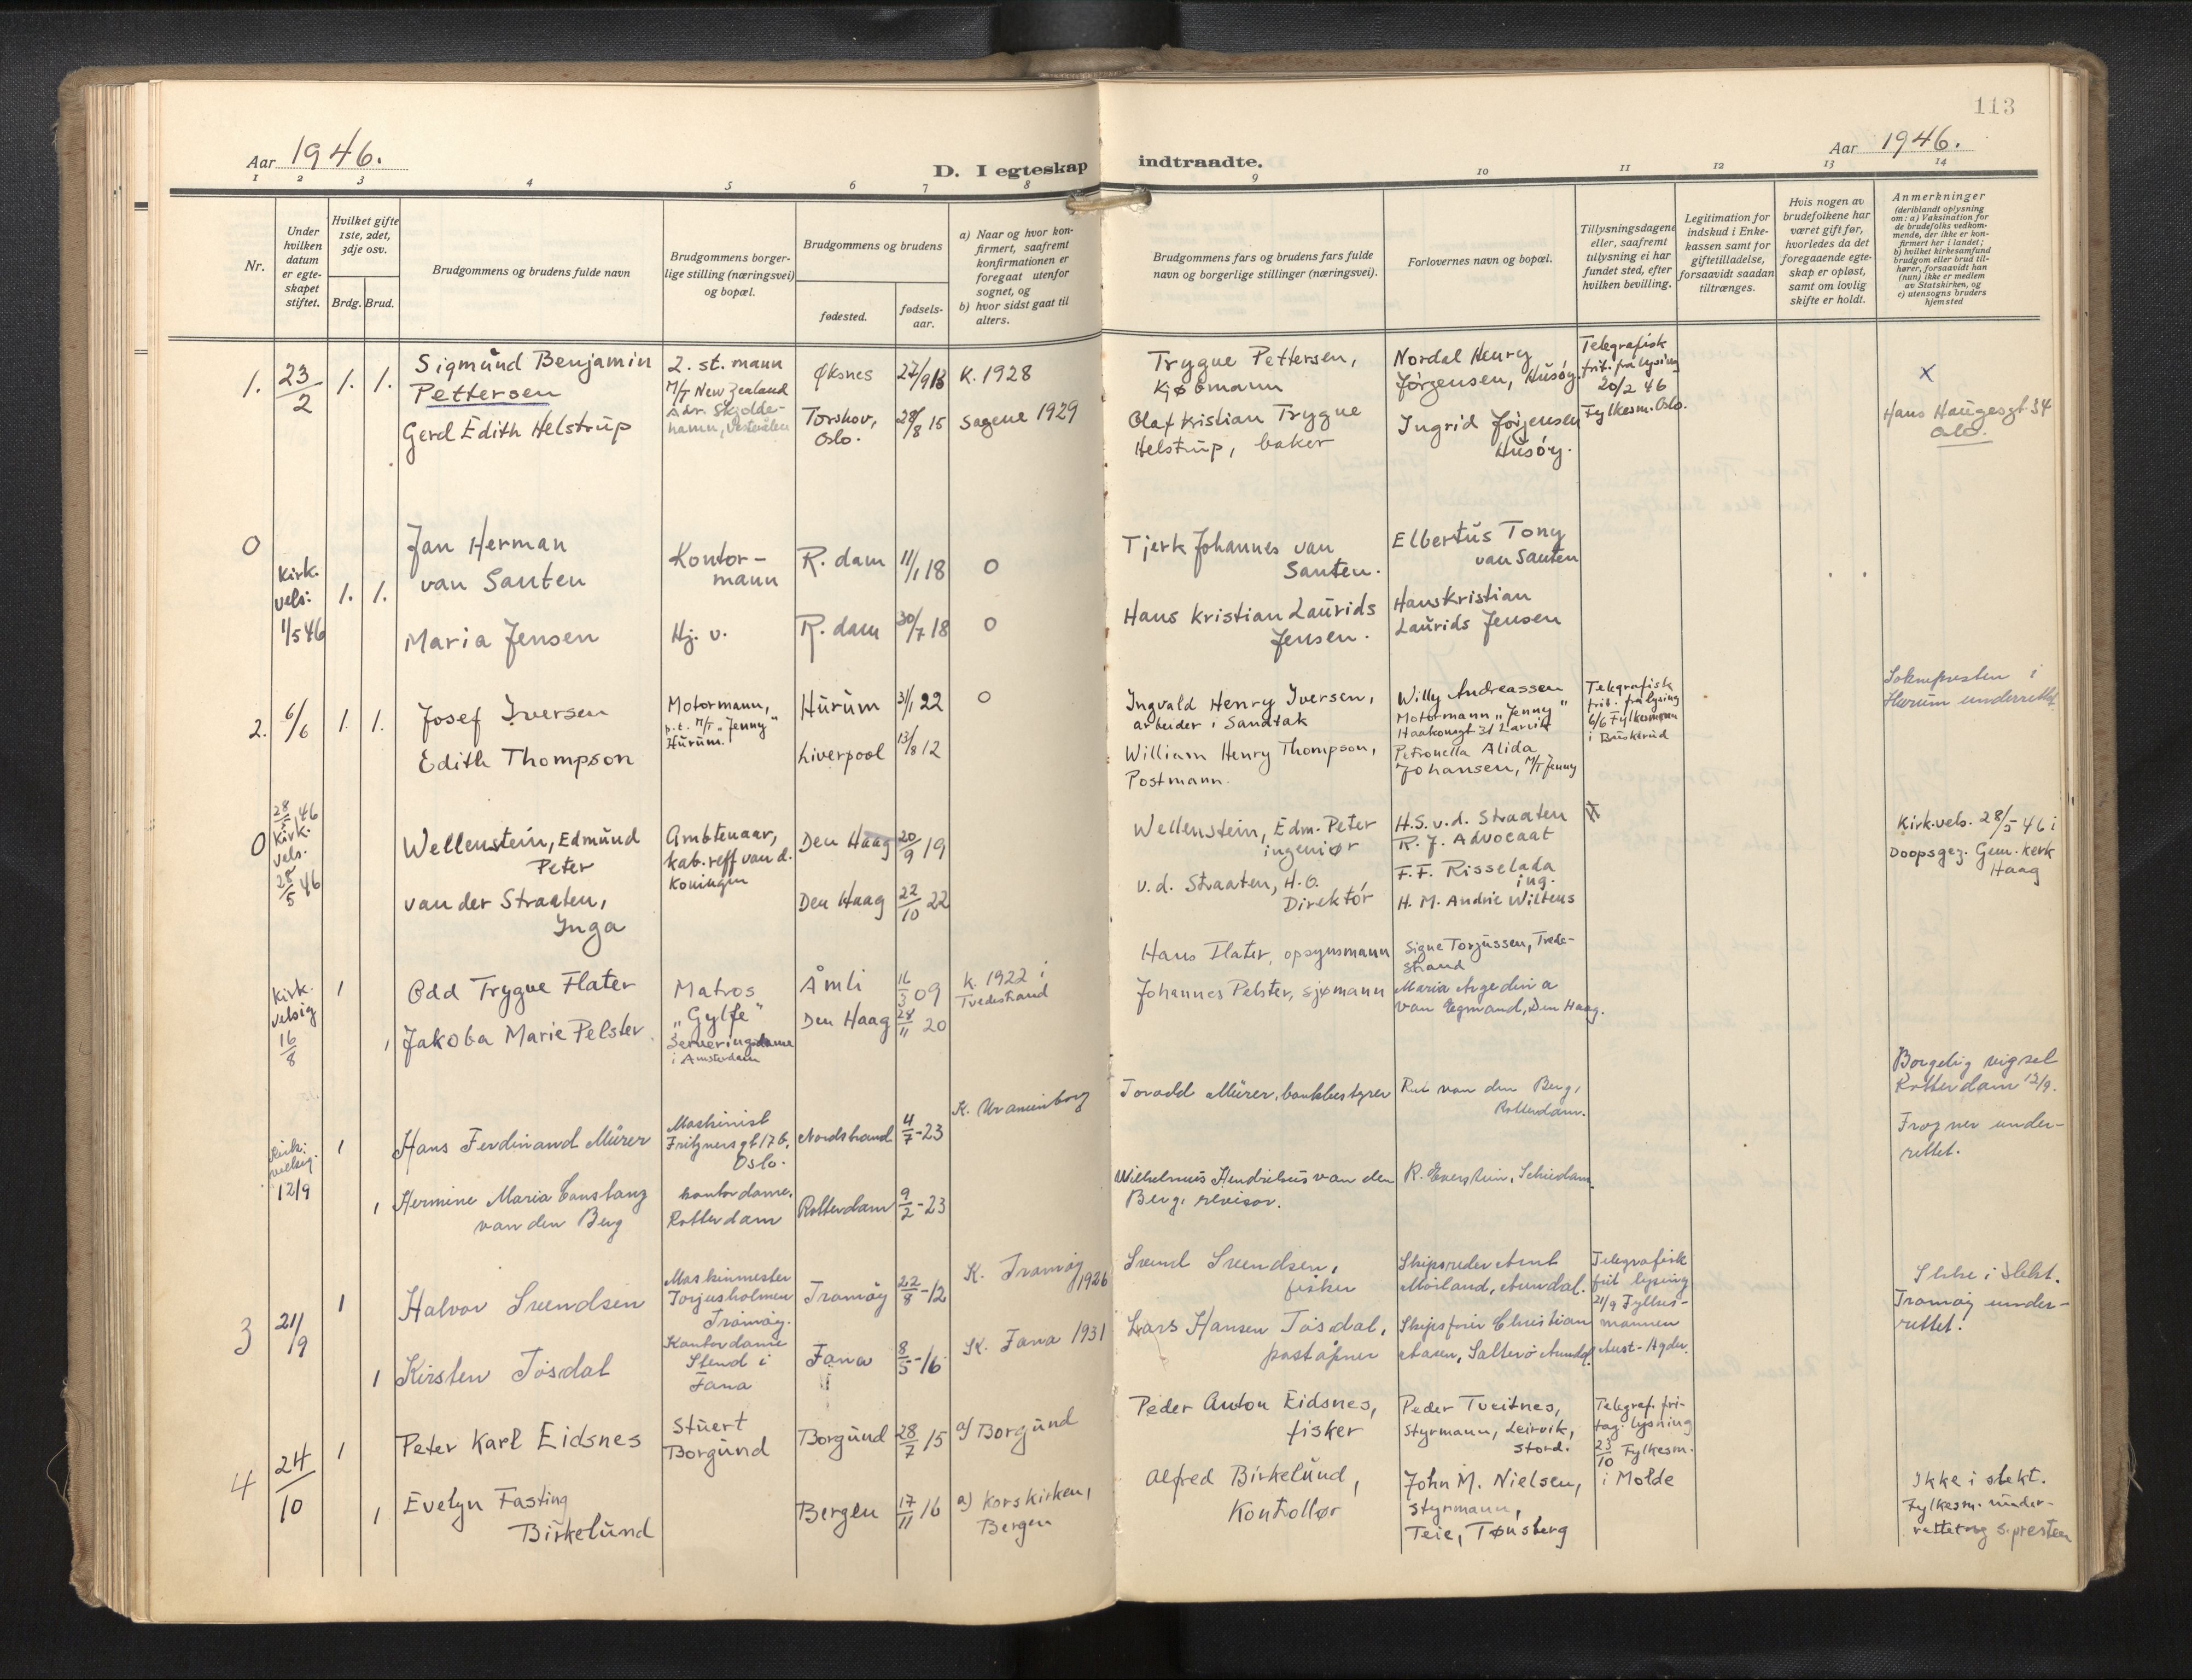 113
Aar 1946.
D. I egteskap indtraadte.
Aar 1946.
1 2 3 4 5 6 7 8 9 10 11 12 13 14
Nr.
Under hvilken datum er egte-skapet stiftet.
Hvilket gifte 1ste, 2det, 3dje osv.
Brdg. Brud.
Brudgommens og brudens fulde navn
Brudgommens borger-lige stilling (næringsvei) og bopæl.
Brudgommens og brudens
fødested.
fødsels-aar.
a) Naar og hvor kon-firmert, saafremt konfirmationen er foregaat utenfor sognet, og
b) hvor sidst gaat til alters.
Brudgommens fars og brudens fars fulde navn og borgerlige stillinger (næringsvei).
Forlovernes navn og bopæl.
Tillysningsdagene eller, saafremt tillysning ei har fundet sted, efter hvilken bevilling.
Legitimation for indskud i Enke-kassen samt for giftetilladelse, forsaavidt saadan tiltrænges.
Hvis nogen av brudefolkene har været gift før, hvorledes da det foregaaende egte-skap er opløst, samt om lovlig skifte er holdt.
Anmerkninger
(deriblandt oplysning om: a) Vaksination for de brudefolks vedkom-mende, der ikke er kon-firmert her i landet; b) hvilket kirkesamfund brudgom eller brud til-hører, forsaavidt han (hun) ikke er medlem av Statskirken, og c) utensogns bruders hjemsted
1. 23/2 1. 1.
Sigmund Benjamin
Pettersen
Gerd Edith Helstrup
2. st. mann
M/T New Zealand
Adr. Skjolde-
hamn, Vesterålen
Øksnes 27/9 13 K. 1928
Torshov,
Oslo. 28/8 15 Sagene 1929
Trygve Pettersen,
Kjøbmann
Olaf Kristian Trygve
Helstrup, baker
Nordal Henry
Jørgensen, Husöy.
Ingrid Jörgensen
Husöy.
Telegrafisk
frit. fra lysing
20/2 46
Fylkesm. Oslo.
x
Hans Haugesgt. 34
Oslo.
0
Kirk.
vels:
1/5 46
1. 1.
Jan Herman
van Santen
Maria Jensen
Kontor-
mann
Hj. v.
R. dam 11/1 18 0
R. dam 30/7 18 0
Tjerk Johannes van
Santen.
Hans Kristian Laurids
Jensen.
Elbertus Tony
van Santen
Hans Kristian
Laurids Jensen
2. 6/6 1. 1.
Josef Iversen
Edith Thompson
Motormann,
p.t. M/T "Jenny"
Hurum.
Hurum 31/1 22 0
Liverpool 13/8 12
Ingvald Henry Iversen,
arbeider i Sandtak
William Henry Thompson,
Postmann.
Willy Andreassen
Motormann "Jenny"
Haakonsgt 31 Larvik
Petronella Alida
Johansen, M/T Jenny
Telegrafisk
frit. fra lysing
6/6 Fylkesmann
i Buskerud
Soknepresten i
Hurum underrettet.
28/5 46
0
Kirk.
vels.
28/5 46
Wellenstein, Edmund
Peter
van der Straaten,
Inga
Ambtenaar,
kab. reff van d.
Koningin
Den Haag 20/9 19
Den Haag 22/10 22
Wellenstein, Edm. Peter
ingeniør
v.d. Straaten, H.O.
Direktör
H.S. v.d. Straaten
R. J. Advocaat
F.F. Risselada
ing.
H. M. Andrie Wiltens
Kirk.vels. 28/5 46 i
Doopsgez. Gem. kerk
Haag
Kirk.
velsig
16/8
1
1
Odd Trygve Flater
Jakoba Marie Pelster
Matros
"Gylfe"
Serveringsdame
i Amsterdam
Åmli 16/3 09
Den Haag 28/11 20
K. 1922 i
Tvedestrand
Hans Flater, opsynsmann
Johannes Pelster, sjømann
Signe Torjussen, Tvede-
strand
Maria Angedina
van Egmand, Den Haag.
Kirk:
velsig.
12/9
1
1
Hans Ferdinand Mürer
Hermine Maria Constanz
van den Berg
Maskinist
Fritznersgt 17b,
Oslo.
kontordame,
Rotterdam
Nordstrand 4/7-23
Rotterdam 9/2-23
K. Uranienborg
Toradd Mürer, bankbestyrer
Wilhelmus Hendrikus van den
Berg, revisor.
Rut van den Berg,
Rotterdam.
R. Everstein, Schiedam.
Borgelig vigsel
Rotterdam 12/9.
Frogner under-
rettet.
3 21/9
1
1
Halvor Svendsen
Kirsten Tösdal
Maskinmester
Torjusholmen
Tromöy.
Kontordame
Stend i
Fana
Tromöy 22/8-12
Fana 8/5-16
K. Tromöy
1926
K. Fana 1931
Svend Svendsen,
fisker
Lars Hansen Tösdal,
poståpner
Skipsreder Arnt
Mörland, Arendal.
Skipsfører Christian
Aasen, Salterö Arendal.
Telegrafisk
frit. lysing
21/9 Fylkes-
mannen
Aust-Agder.
Ikke i slekt.
Tromöy under-
rettet.
4 24/10
1
1
Peter Karl Eidsnes
Evelyn Fasting
Birkelund
Stuert
Borgund
Borgund 28/7 15
Bergen 17/11 16
a) Borgund
a) Korskirken,
Bergen
Peder Anton Eidsnes,
fisker
Alfred Birkelund,
Kontrollør
Peder Tveitnes,
Styrmann, Leirvik,
Stord.
John M. Nielsen,
Styrmann,
Teie, Tønsberg
Telegraf. fri-
tag. lysning
23/10 Fylkesm.
i Molde
Ikke i slekt.
Fylkesm. under-
rettet og s.presten